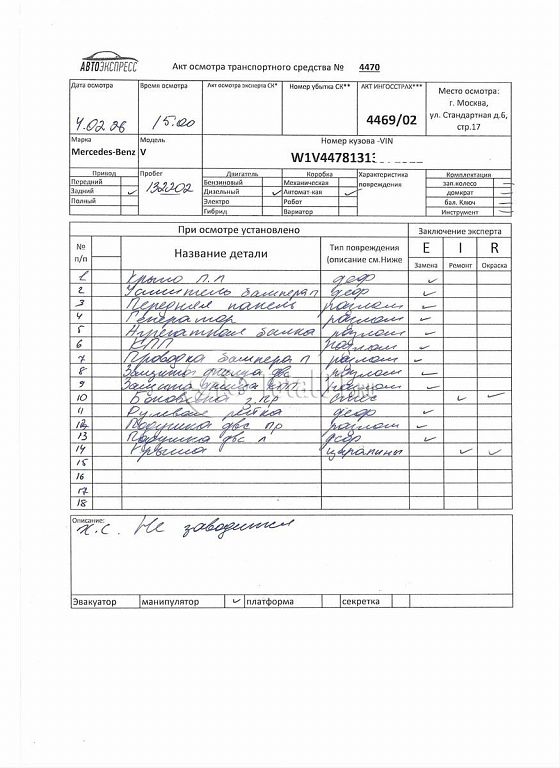 АВТОЭКСПРЕСС
Акт осмотра транспортного средства № 4470
Дата осмотра Время осмотра Акт осмотра эксперта СК* Номер убытка СК** АКТ ИНГОССТРАХ*** Место осмотра:
г. Москва,
ул. Стандартная д.6,
стр.17
4.02.26 15.00 4469/02
Марка Модель Номер кузова -VIN
Mercedes-Benz V W1V4478131
Привод Пробег Двигатель Коробка Характеристика повреждения Комплектация
Передний Бензиновый Механическая зап.колесо
Задний 132202 Дизельный Автомат-кая домкрат
Полный Электро Робот бал. Ключ
Гибрид Вариатор Инструмент
При осмотре установлено Заключение эксперта
№ п/п Название детали Тип повреждения (описание см.Ниже E I R
Замена Ремонт Окраска
1 Крыло П.П деф
2 Усилитель бампера П деф
3 Передняя панель разлом
4 Генератор разлом
5 Агрегатная балка разлом
6 КПП разлом
7 Проводка бампера П разлом
8 Защита днища двс разлом
9 Защита днища КПП разлом
10 Боковина з.пр
11 Рулевая рейка деф
12 Подушка двс пр разлом
13 Подушка двс л деф
14 Крыша царапины
15
16
17
18
Описание:
х.с. Не заводится
Эвакуатор манипулятор платформа секретка